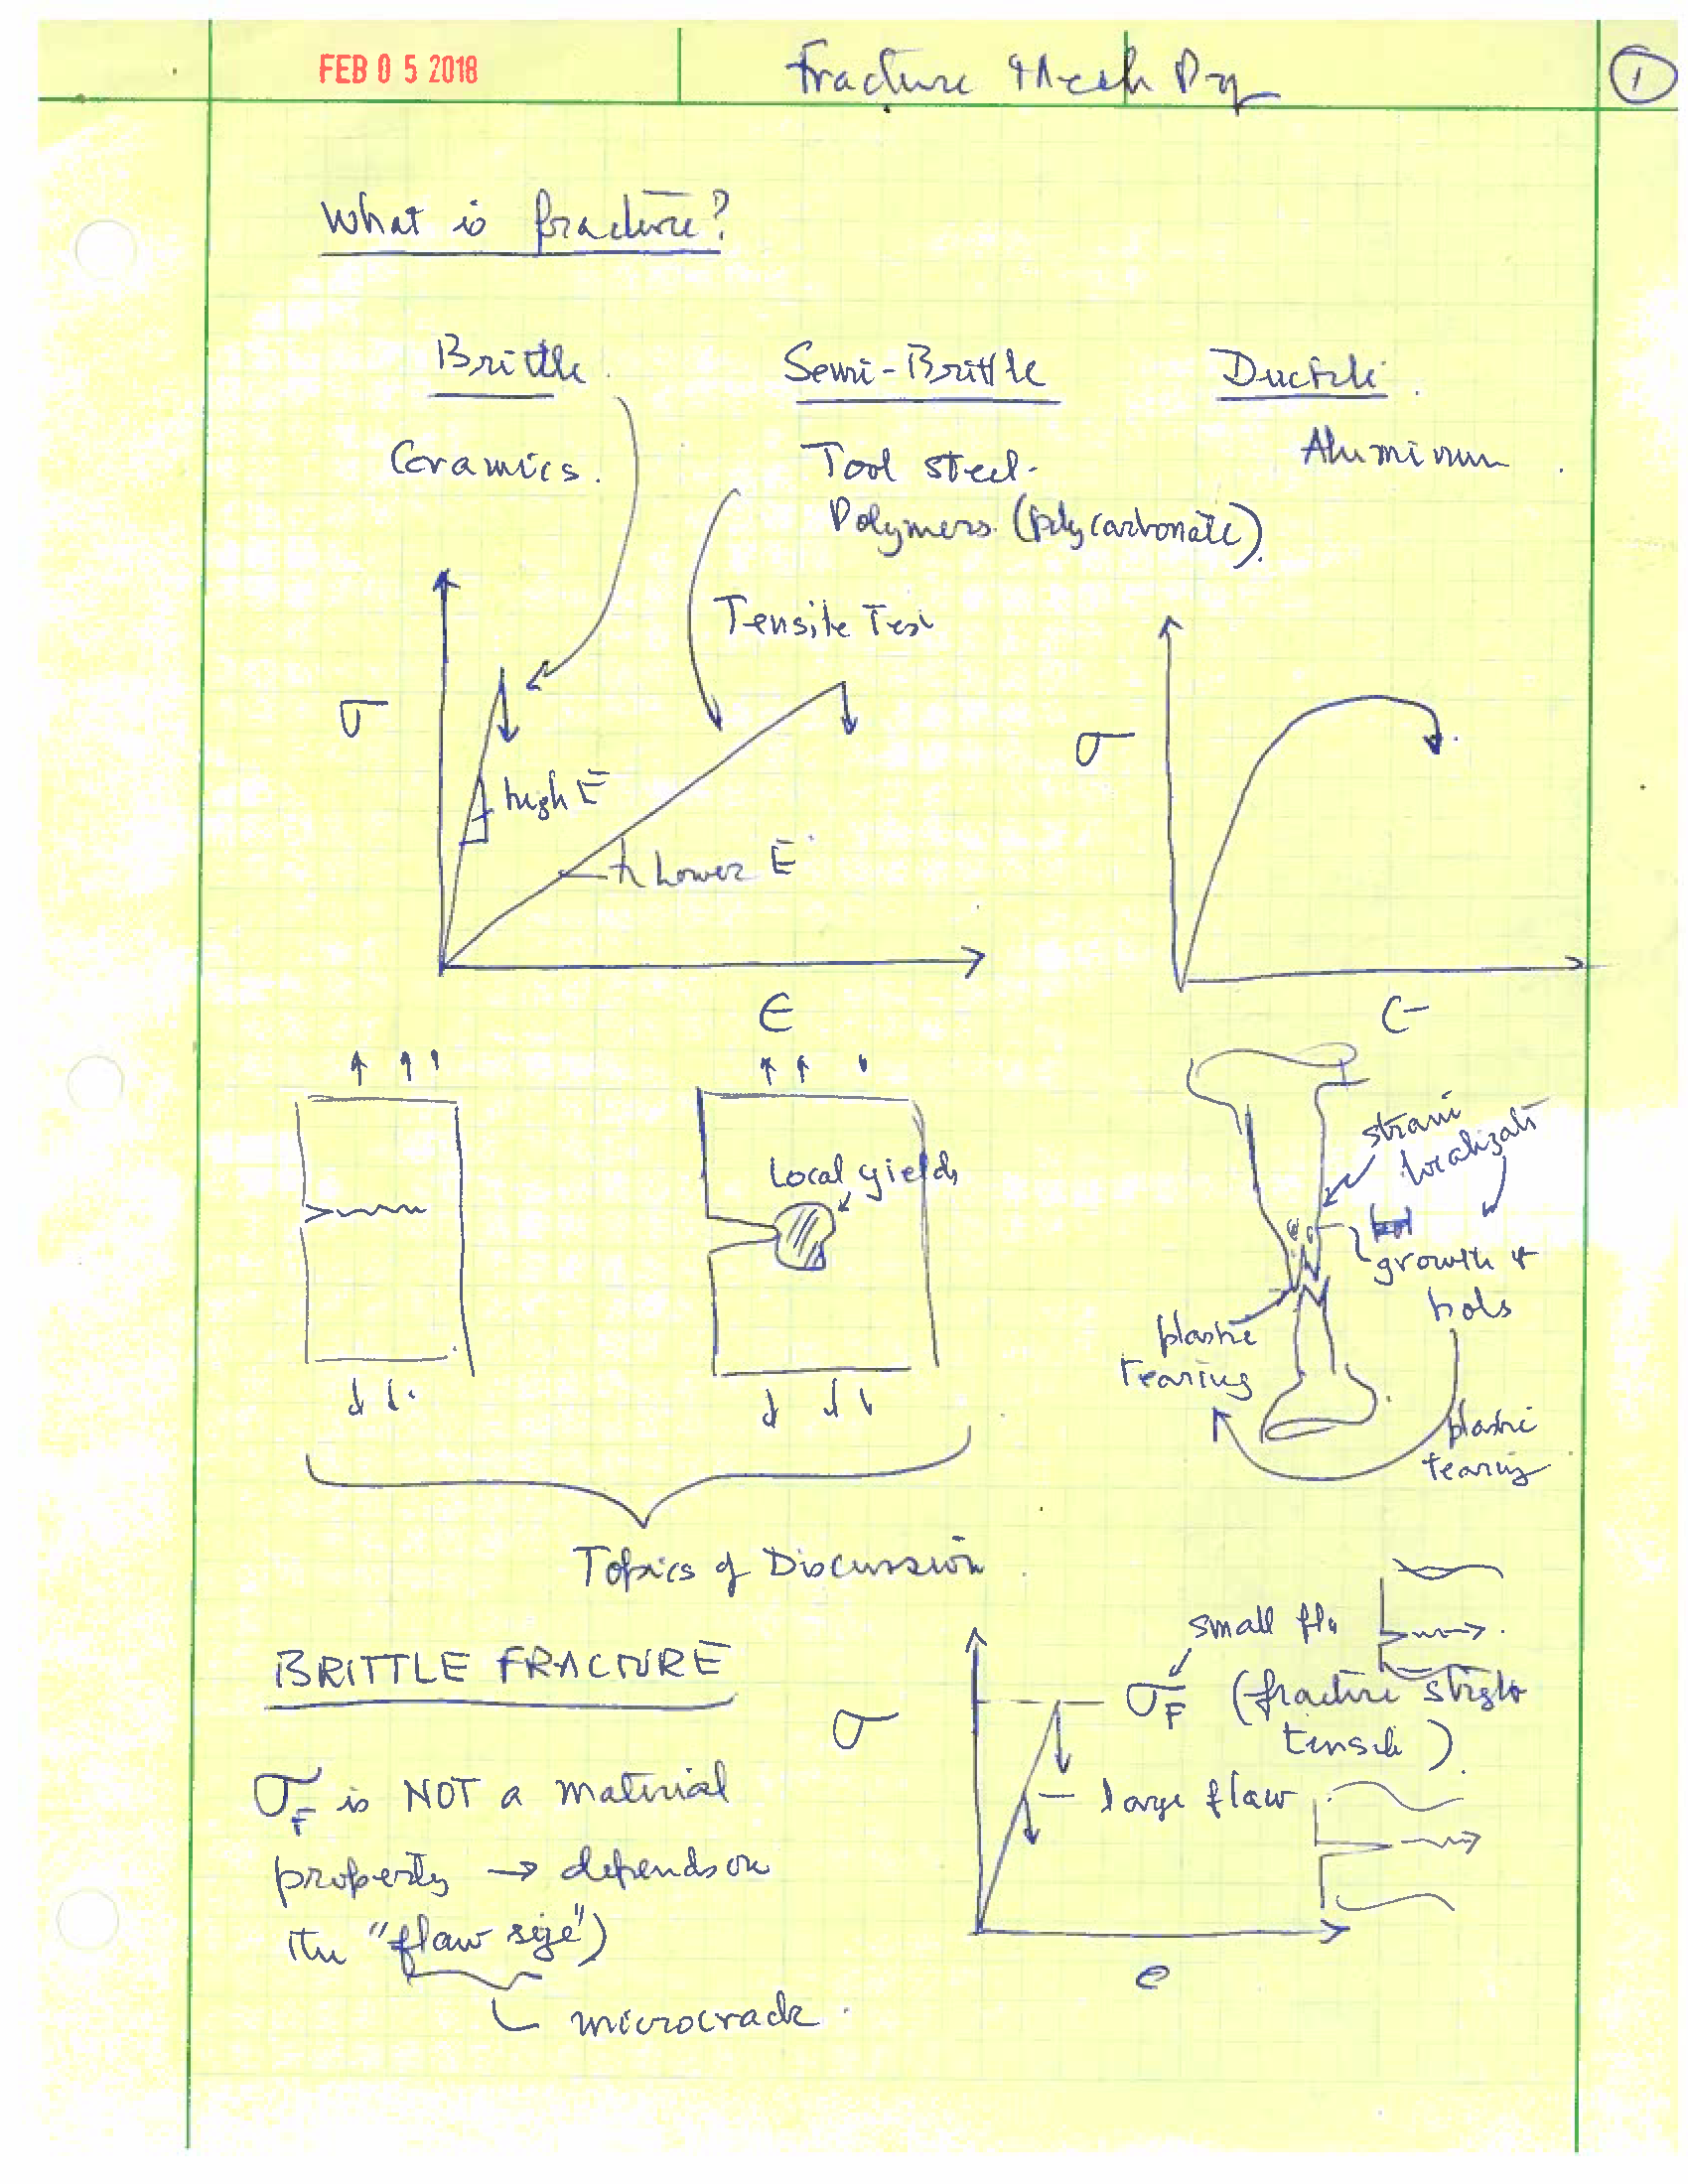 FEB 0 5 2018
Fracture & Mech Prop
1
What is fracture?
Brittle
Semi-Brittle
Ductile
Ceramics.
Tool steel
Aluminum
Polymers (polycarbonate)
Tensile Test
σ
σ
high E
Lower E
ϵ
ϵ
strain
localizati
Local yields
growth of
hols
plastic
tearing
plastic
tearing
Topics of Discussion
BRITTLE FRACTURE
small fla
σ
σF (fracture
tensile)
σF is NOT a material
large flaw
property → depends on
the "flaw size")
e
microcrack